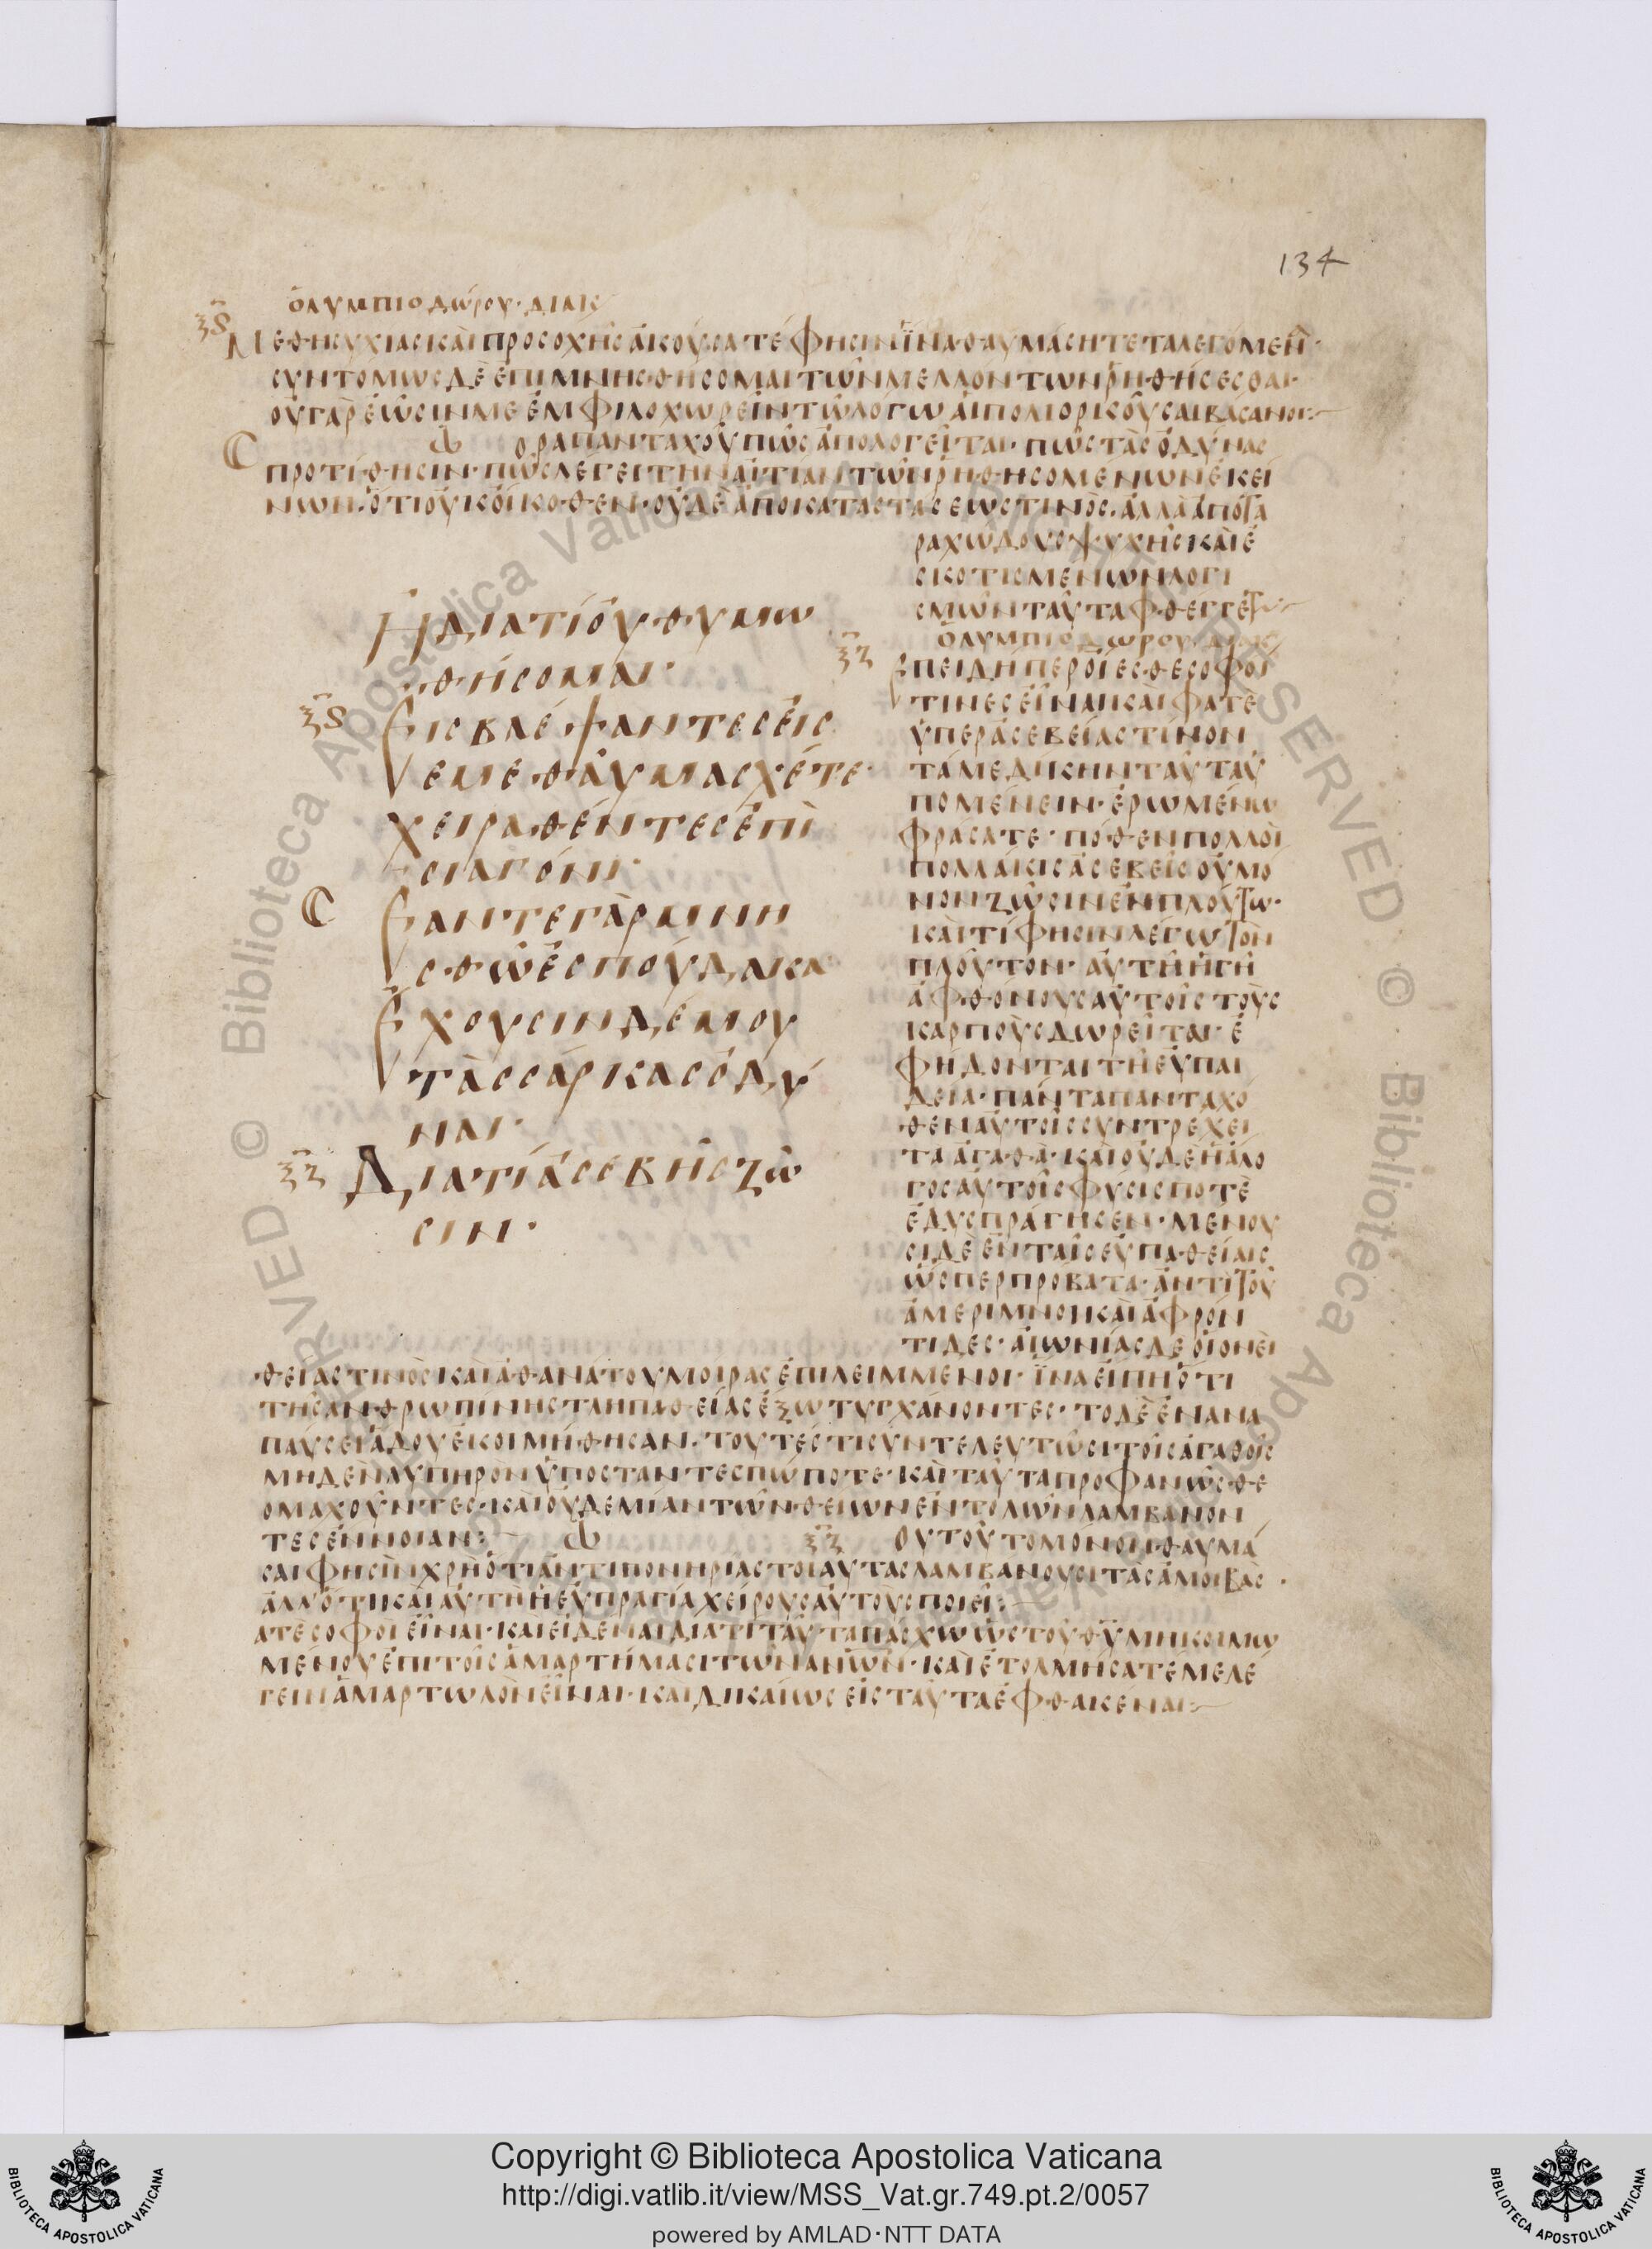 134
ὀλυμπιοδώρου· διακ
ξϛ
Μεθησυχίας καὶ προσοχῆς ἀκούσατέ φησιν ἵνα θαυμάσητε τα λεγόμεν
συντόμως δὲ ἐπιμνησθήσομαι τῶν μελλόντων ῥηθήσεσθαι·
οὐ γὰρ ἐῶσιν με ἐμφιλοχωρεῖν τῶ λόγω αἱ πολιορκοῦσαι βάσανοι:
ὅρα πανταχοῦ πῶς ἀπολογεῖται· πῶς τὰς ὀδύνας
προτίθησιν· πῶς λέγει τὴν αἰτίαν τῶν ῥηθησομένων ἐκεί
νων· ὅτι οὐκ οἴκοθεν· οὐδὲ ἀποκαταστάσεως τινὸς· ἀλλὰ ἀπὸ τα
ραχώδους ψυχῆς καὶ ἐ
σκοτισμένων λογι
σμῶν ταῦτα φθέγγεται
Ἢ διατί οὐ θυμω
θήσομαι·
ξϛ
Εἰσβλέψαντες εἰς
ἐμὲ θαυμάσχετε·
χεῖρα θέντες ἐπὶ
σιαγόνι·
Ἐάν τε γὰρ μνη
σθῶ ἐσπούδακα
Ἔχουσιν δέ μου
τὰς σάρκας ὀδύ
ναι·
ξζ
Διατί ἀσεβῆς ζῶ
σιν·
ξζ
ὀλυμπιοδώρου· διακ
Ἐπειδήπερ οἴεσθε σοφοί
τινες εἶναι καὶ φατὲ
ὑπὲρ ἀσεβείας τίνον
τά με δίκην ταῦτα ὑ
πομένειν· ἐρωμένω
φράσατε· πόθεν πολλοὶ
πολλάκις ἀσεβεῖς οὐ μό
νον ζῶσιν ἐν πλούτω·
καὶ τί φησιν λέγω τὸν
πλοῦτον· αὐτὴ ἡ γῆ
ἀφθόνους αὐτοῖς τοὺς
καρποὺς δωρεῖται· ἐ
φήδονται τῆ εὐπαι
δεία· πάντα πανταχό
θεν αὐτοῖς συντρέχει
τὰ ἀγαθὰ· καὶ οὐδὲ ἡ ἄλο
γος αὐτοῖς φύσις ποτὲ
ἐδυσπράγησεν· μένου
σι δὲ ἐν ταῖς εὐπαθείαις
ὥσπερ πρόβατα· ἀντὶ τοῦ
ἀμέριμνοι καὶ ἀφρόν
τιδες· αἰωνίας δὲ οἱονεὶ
θείας τινὸς καὶ ἀθανάτου μοίρας ἐπιλειμμένοι· ἵνα εἴπη ὅτι
τῆς ἀνθρωπίνης ταλαιπαθείας ἔξω τυγχάνοντες· τὸ δὲ ἐν ἀνα
παύσει ἅδου ἐκοιμήθησαν· τουτέστι συντελευτῶσι τοῖς ἀγαθοῖς
μηδὲν λυπηρὸν ὑποστάντες πώποτε· καὶ ταῦτα προφανῶς θε
ομαχοῦντες· καὶ οὐδεμίαν τῶν θείων ἐντολῶν λαμβάνον
τες ἔννοιαν:
ξζ
οὐ τοῦτο μόνον θαυμά
σαι φησὶν χρὴ ὅτι ἀντὶ πονηρίας τοιαύτας λαμβάνουσι τὰς ἀμοιβὰς·
ἀλλ᾽ ὅτι καὶ αὐτὴ ἡ εὐπραγία χείρους αὐτοὺς ποιεῖ:
ατὲ σοφοὶ εἶναι· καὶ εἰδέναι διατί ταῦτα πάσχω ὡς τοῦ θυ μη κοιμω
μένου ἐπὶ τοῖς ἁμαρτήμασι τῶν ανων· καὶ ἐτολμήσατέ με λέ
γειν ἁμαρτωλὸν εἶναι· καὶ δικαίως εἰς ταῦτα ἐφθακέναι:
Copyright © Biblioteca Apostolica Vaticana
http://digi.vatlib.it/view/MSS_Vat.gr.749.pt.2/0057
powered by AMLAD·NTT DATA